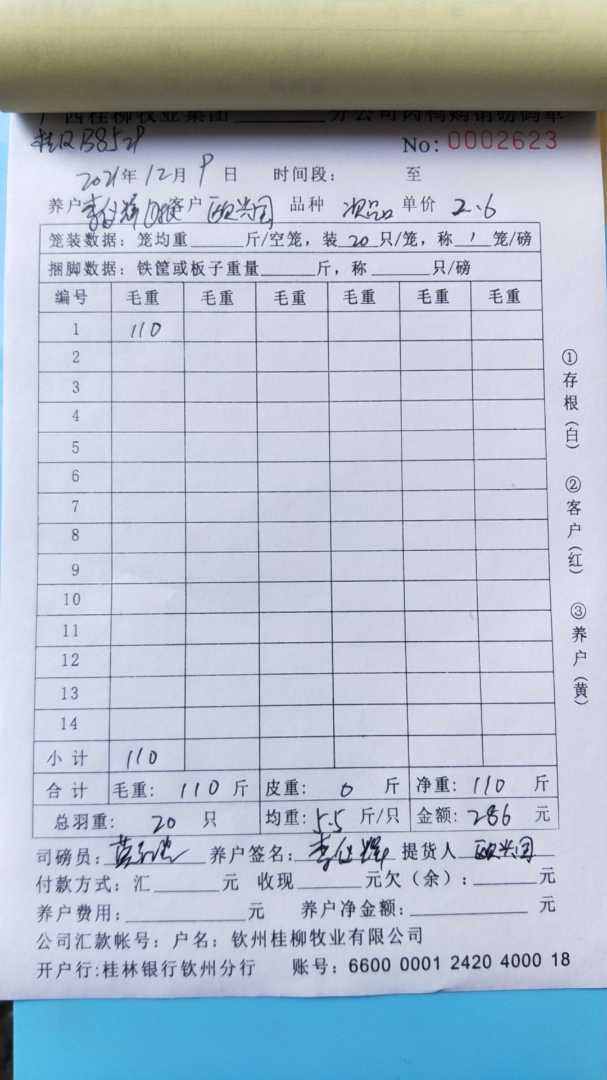 广西桂柳牧业集团______分公司肉鸭购销磅码单
桂R B8529
No: 0002623
2021年12月9日 时间段: 至
养户 客户 欧兴国 品种 次品 单价 2.6
笼装数据: 笼均重______斤/空笼, 装 20 只/笼, 称 1 笼/磅
捆脚数据: 铁筐或板子重量______斤, 称______只/磅
编号 毛重 毛重 毛重 毛重 毛重 毛重
1 110
2
3
4
5
6
7
8
9
10
11
12
13
14
小计 110
合计 毛重: 110 斤 皮重: 0 斤 净重: 110 斤
总羽重: 20 只 均重: 5.5 斤/只 金额: 286 元
司磅员: 养户签名: 提货人 欧兴国
付款方式: 汇______元 收现______元欠（余）:______元
养户费用:______元 养户净金额:______元
公司汇款帐号: 户名: 钦州桂柳牧业有限公司
开户行:桂林银行钦州分行 账号: 6600 0001 2420 4000 18
①存根（白） ②客户（红） ③养户（黄）